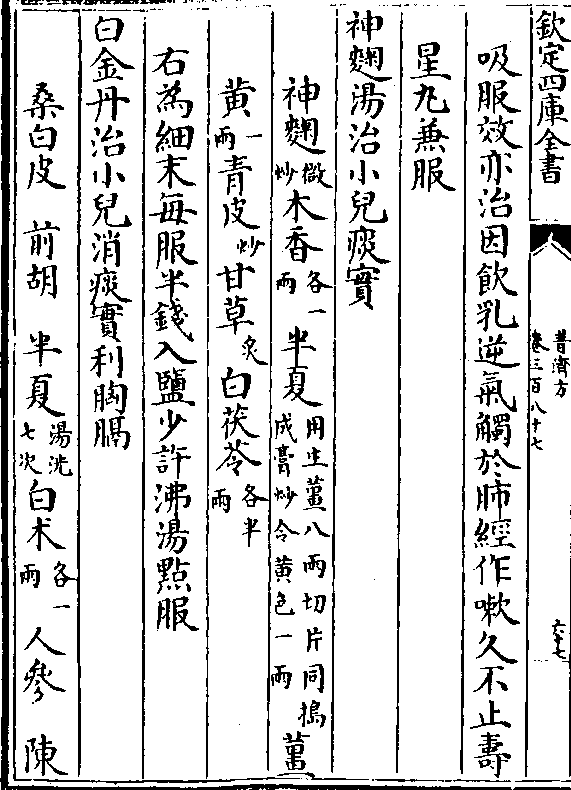 欽定四庫全書
普濟方
卷三百八十七
六十七
吸服效亦治因飲乳逆氣觸於肺經作嗽久不止壽
星丸兼服
神麴湯治小兒痰實
神麴微炒木香各一兩半夏用生薑八兩切片同搗成膏炒令黄色一兩薑
黄一兩青皮炒甘草炙白茯苓各半兩
右為細末每服半錢入鹽少許沸湯點服
白金丹治小兒消痰實利胸膈
桑白皮 前胡 半夏湯洗七次白术各一兩人參 陳